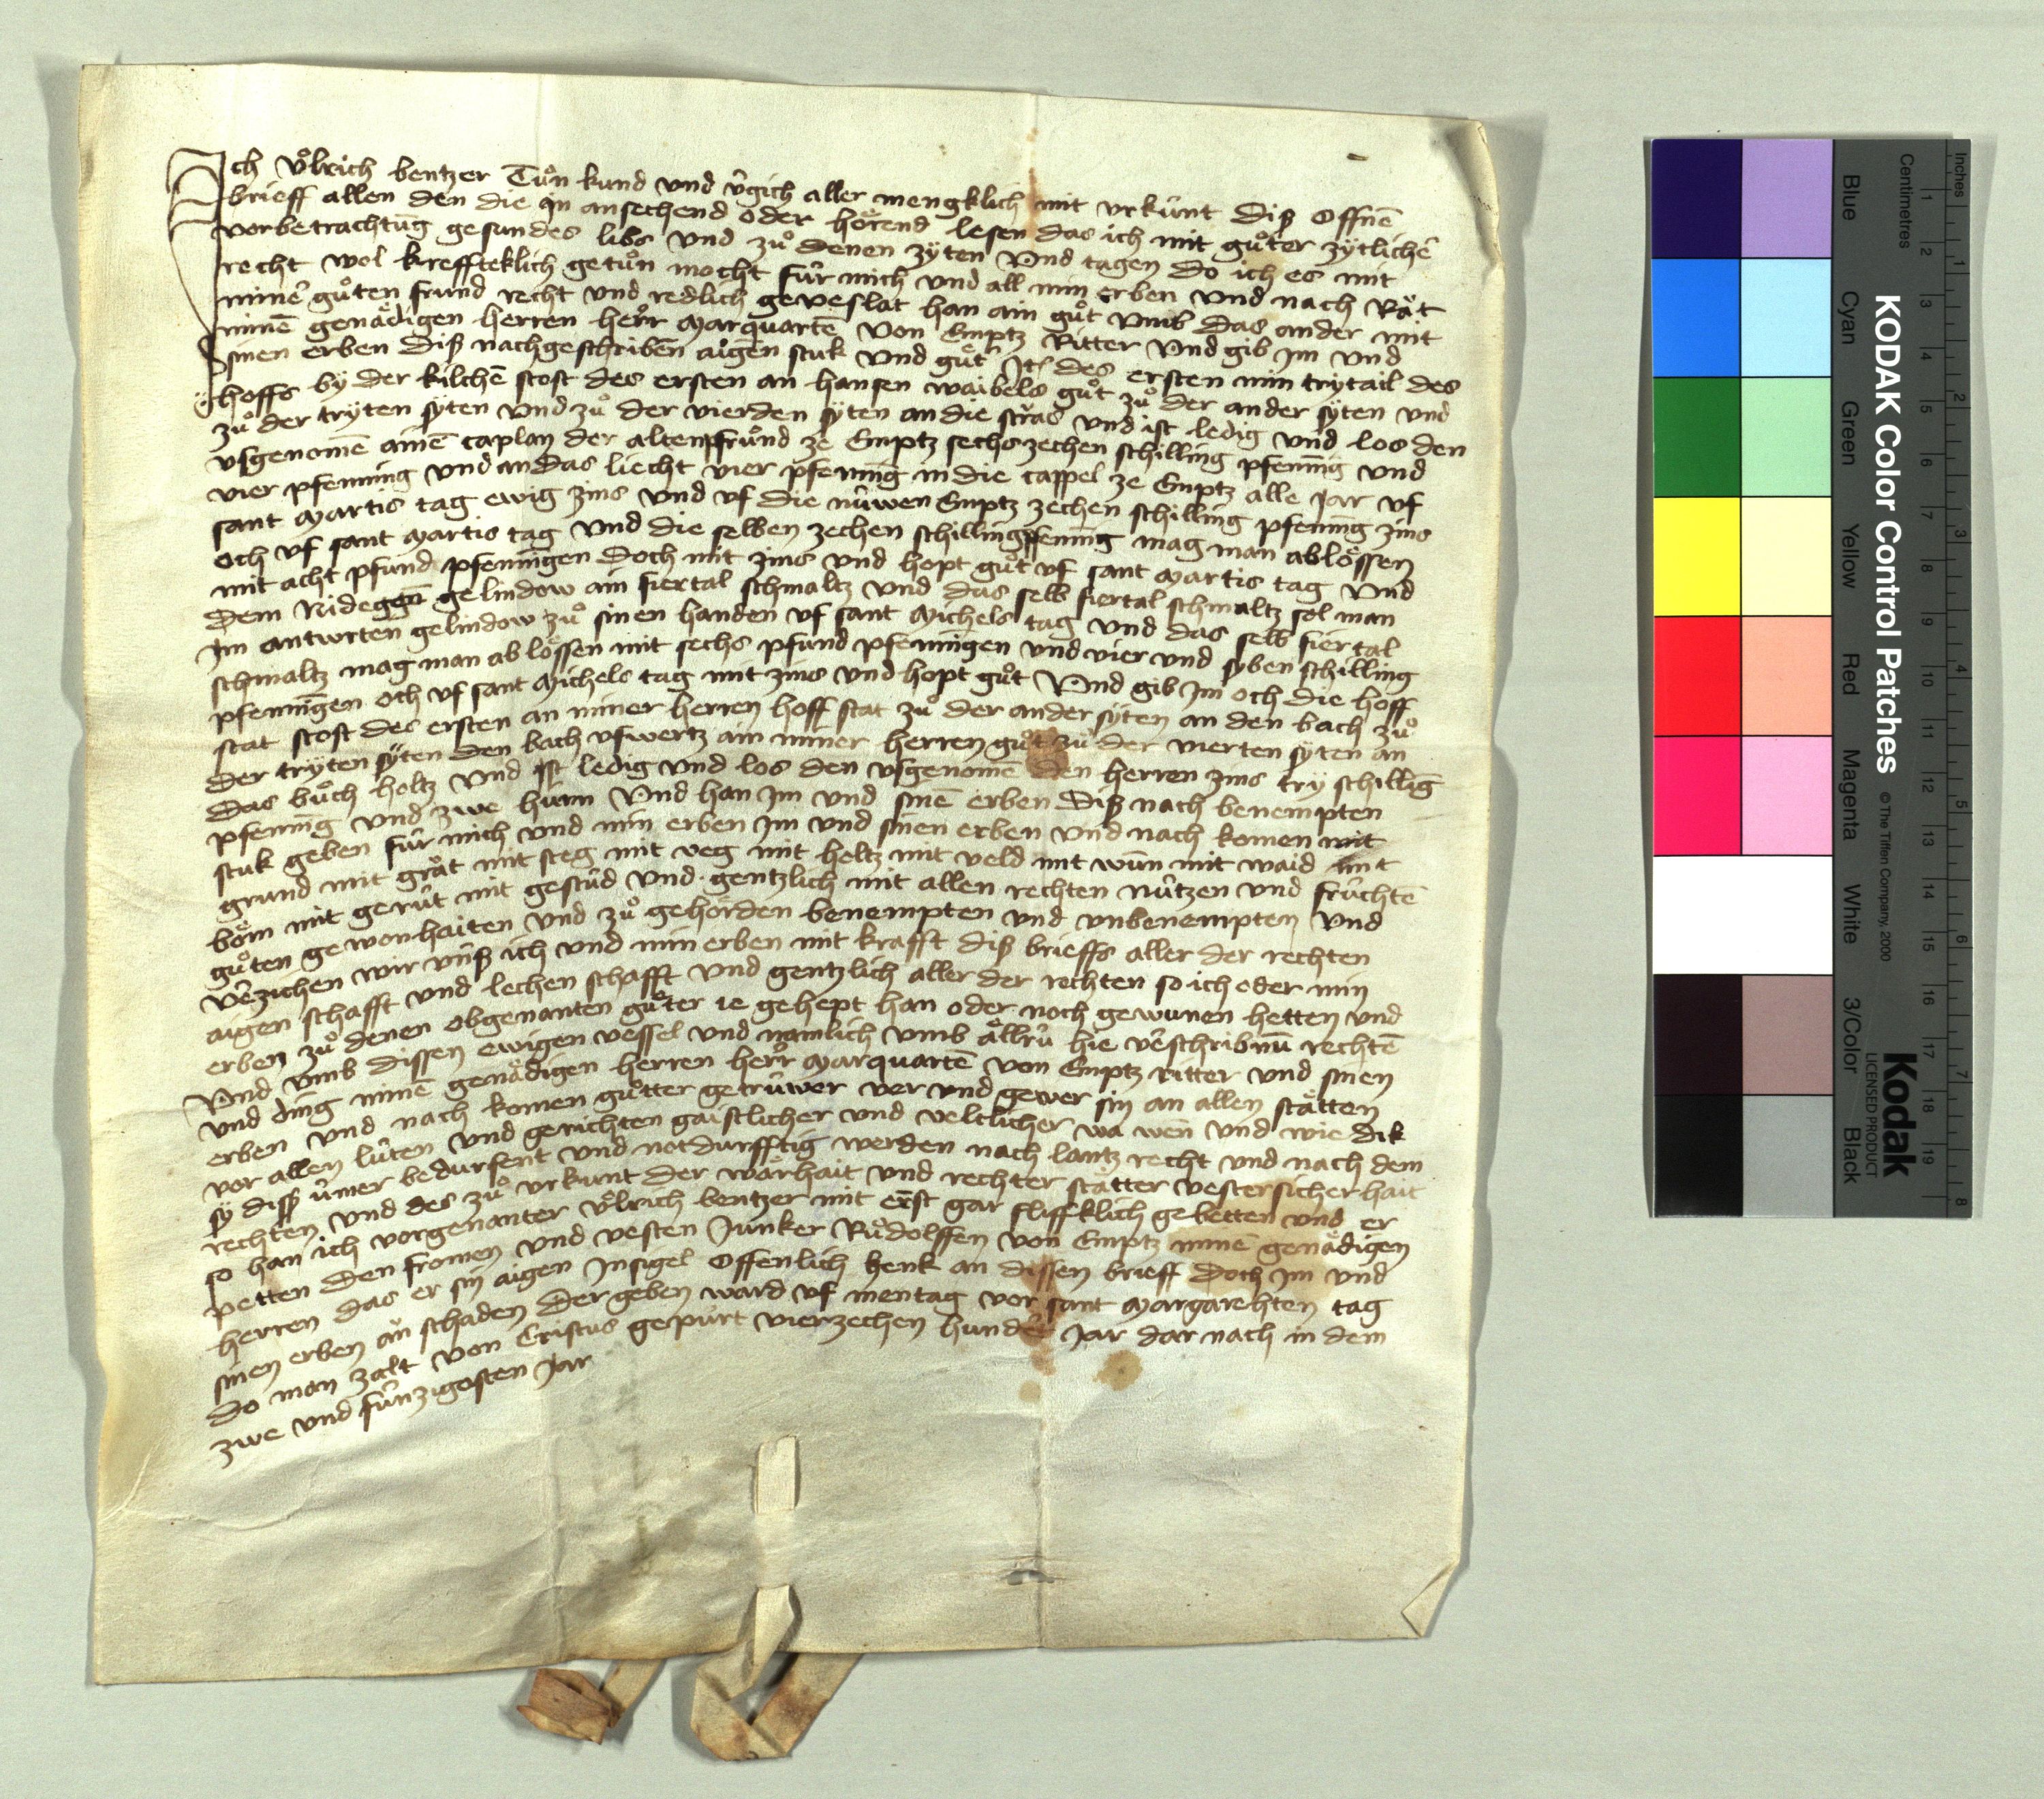 Ich Uͦlrich bentzer Tuͦn kund und v̂gich aller mengklich mit urkúnt diß offnē
brieff allen den die in ansechend oder hoͤrend lesen das ich mit guͦter zÿtlicher̂
vorbetrachtūg gesundes libs und zuͦ denen zÿten und tagen do ich es mit
recht wol kreffteklich getuͦn mocht fúr mich und all min erben und nach Raͤt
miner̂ guͦten frúnd recht und redlich gevexlat han ain guͦt umb das ander mit
minē genaͤdigen herren herr Marquartē von Emptz Ritter und gib im und
sinen erben diß nachgeschriben aigen stuk und guͤt Itē des ersten min trytail des
hoffs bÿ der kilchē stost des ersten an hansen waibels guͦt zuͦ der ander sÿten und
zuͦ der trÿten sÿten und zuͦ der vierden sÿten an die straͮs und ist ledig und los den
usgenomē ainē caplan der altenpfruͦnd ze Emptz sechszechen schilling pfennīg und
vier pfenning und an das liecht vier pfennīg in die cappel ze Emptz alle jar uf
sant Martis tag ewig zins und uf die núwen Emptz zechen schilling pfenning zins
och uf sant Martis tag und die selben zechen schillingpfennīg mag man abloͤssen
mit acht pfund pfenningen doch mit zins und hopt guͦt uf sant Martis tag und
dem Nidegen gelindow ain fiertal schmaltz und das selb fiertal schmaltz sol man
im antwrten gelindow zuͦ sinen handen uf sant Michels tag und das selb fiertal
schmaltz mag man ab loͤssen mit sechs pfund pfenningen und vier und syben schilling
pfenningen och uf sant Michels tag mit zins und hopt guͦt und gib im och die hoff
stat stost des ersten an miner herren hoff stat zuͦ der ander sÿten an den bach zuͦ
der trÿten sÿten den bach ufwertz ain miner herren guͦt zuͦ der vierten sÿten an
das buͦch holtz und ist ledig und los den usgenomē den herren zins try schillīg
pfennīg und zwe huͤnn und han im und sinē erben diß nach benempten
stuk geben fúr mich und min erben im und sinen erben und nach komen mit
grund mit graͮt mit steg mit weg mit holtz mit veld mit wun mit waid mit
boͤm mit gerút mit gestúd und gentzlich mit allen rechten nútzen und frúchtē
guͦten gewonhaiten und zuͦ gehoͤrden benempten und unbenempten und
ver̂zichen wir únß ich und min erben mit krafft diß brieffs aller der rechten
aigen schafft und lechen schafft und gentzlich aller der rechten so ich oder min
erben zuͦ denen obgenanten guͤter ie gehept han oder noch gewunen hetten und
und umb dissen ewigen vessel und namlich umb aͤllrú hie ver̂schribnū rechtē
und ding minē genaͤdigen herren herr Marquartē von Emptz ritter und sinen
erben und nach komen guͤtter getrúwer wer und gewer sin an allen staͤtten
vor allen lúten und gerichten gaistlicher und veltlicher wa wen und wie dik
sÿ diss úmer bedúrfent und notdurfftig werden nach lantz recht und nach dem
rechten und des zuͦ urkunt der waͮrhait und rechter staͤtter vestersicherhait
so han ich vorgenanter Uͦlrich bentzer mit ernst gar flisseklich gebetten und er
petten den fromen und vesten Junker Ruͦdolffen von Emptz minē genaͤdigen
herren das er sin aigen Insigel offenlich henk an dissen brieff doch im und
sinen erben aͮn schaden der geben ward uf mentag vor sant Margarehten tag
do man zalt von Cristus gepúrt vierzechen hunder̂t jar dar nach in dem
zwe und fúnzigosten jar
KODAK Color Control Patches
© The Tiffen Company, 2000
Kodak
LICENSED PRODUCT
Blue Cyan Green Yellow Red Magenta White 3/Color Black
Inches 1 2 3 4 5 6 7 8
Centimetres 1 2 3 4 5 6 7 8 9 10 11 12 13 14 15 16 17 18 19